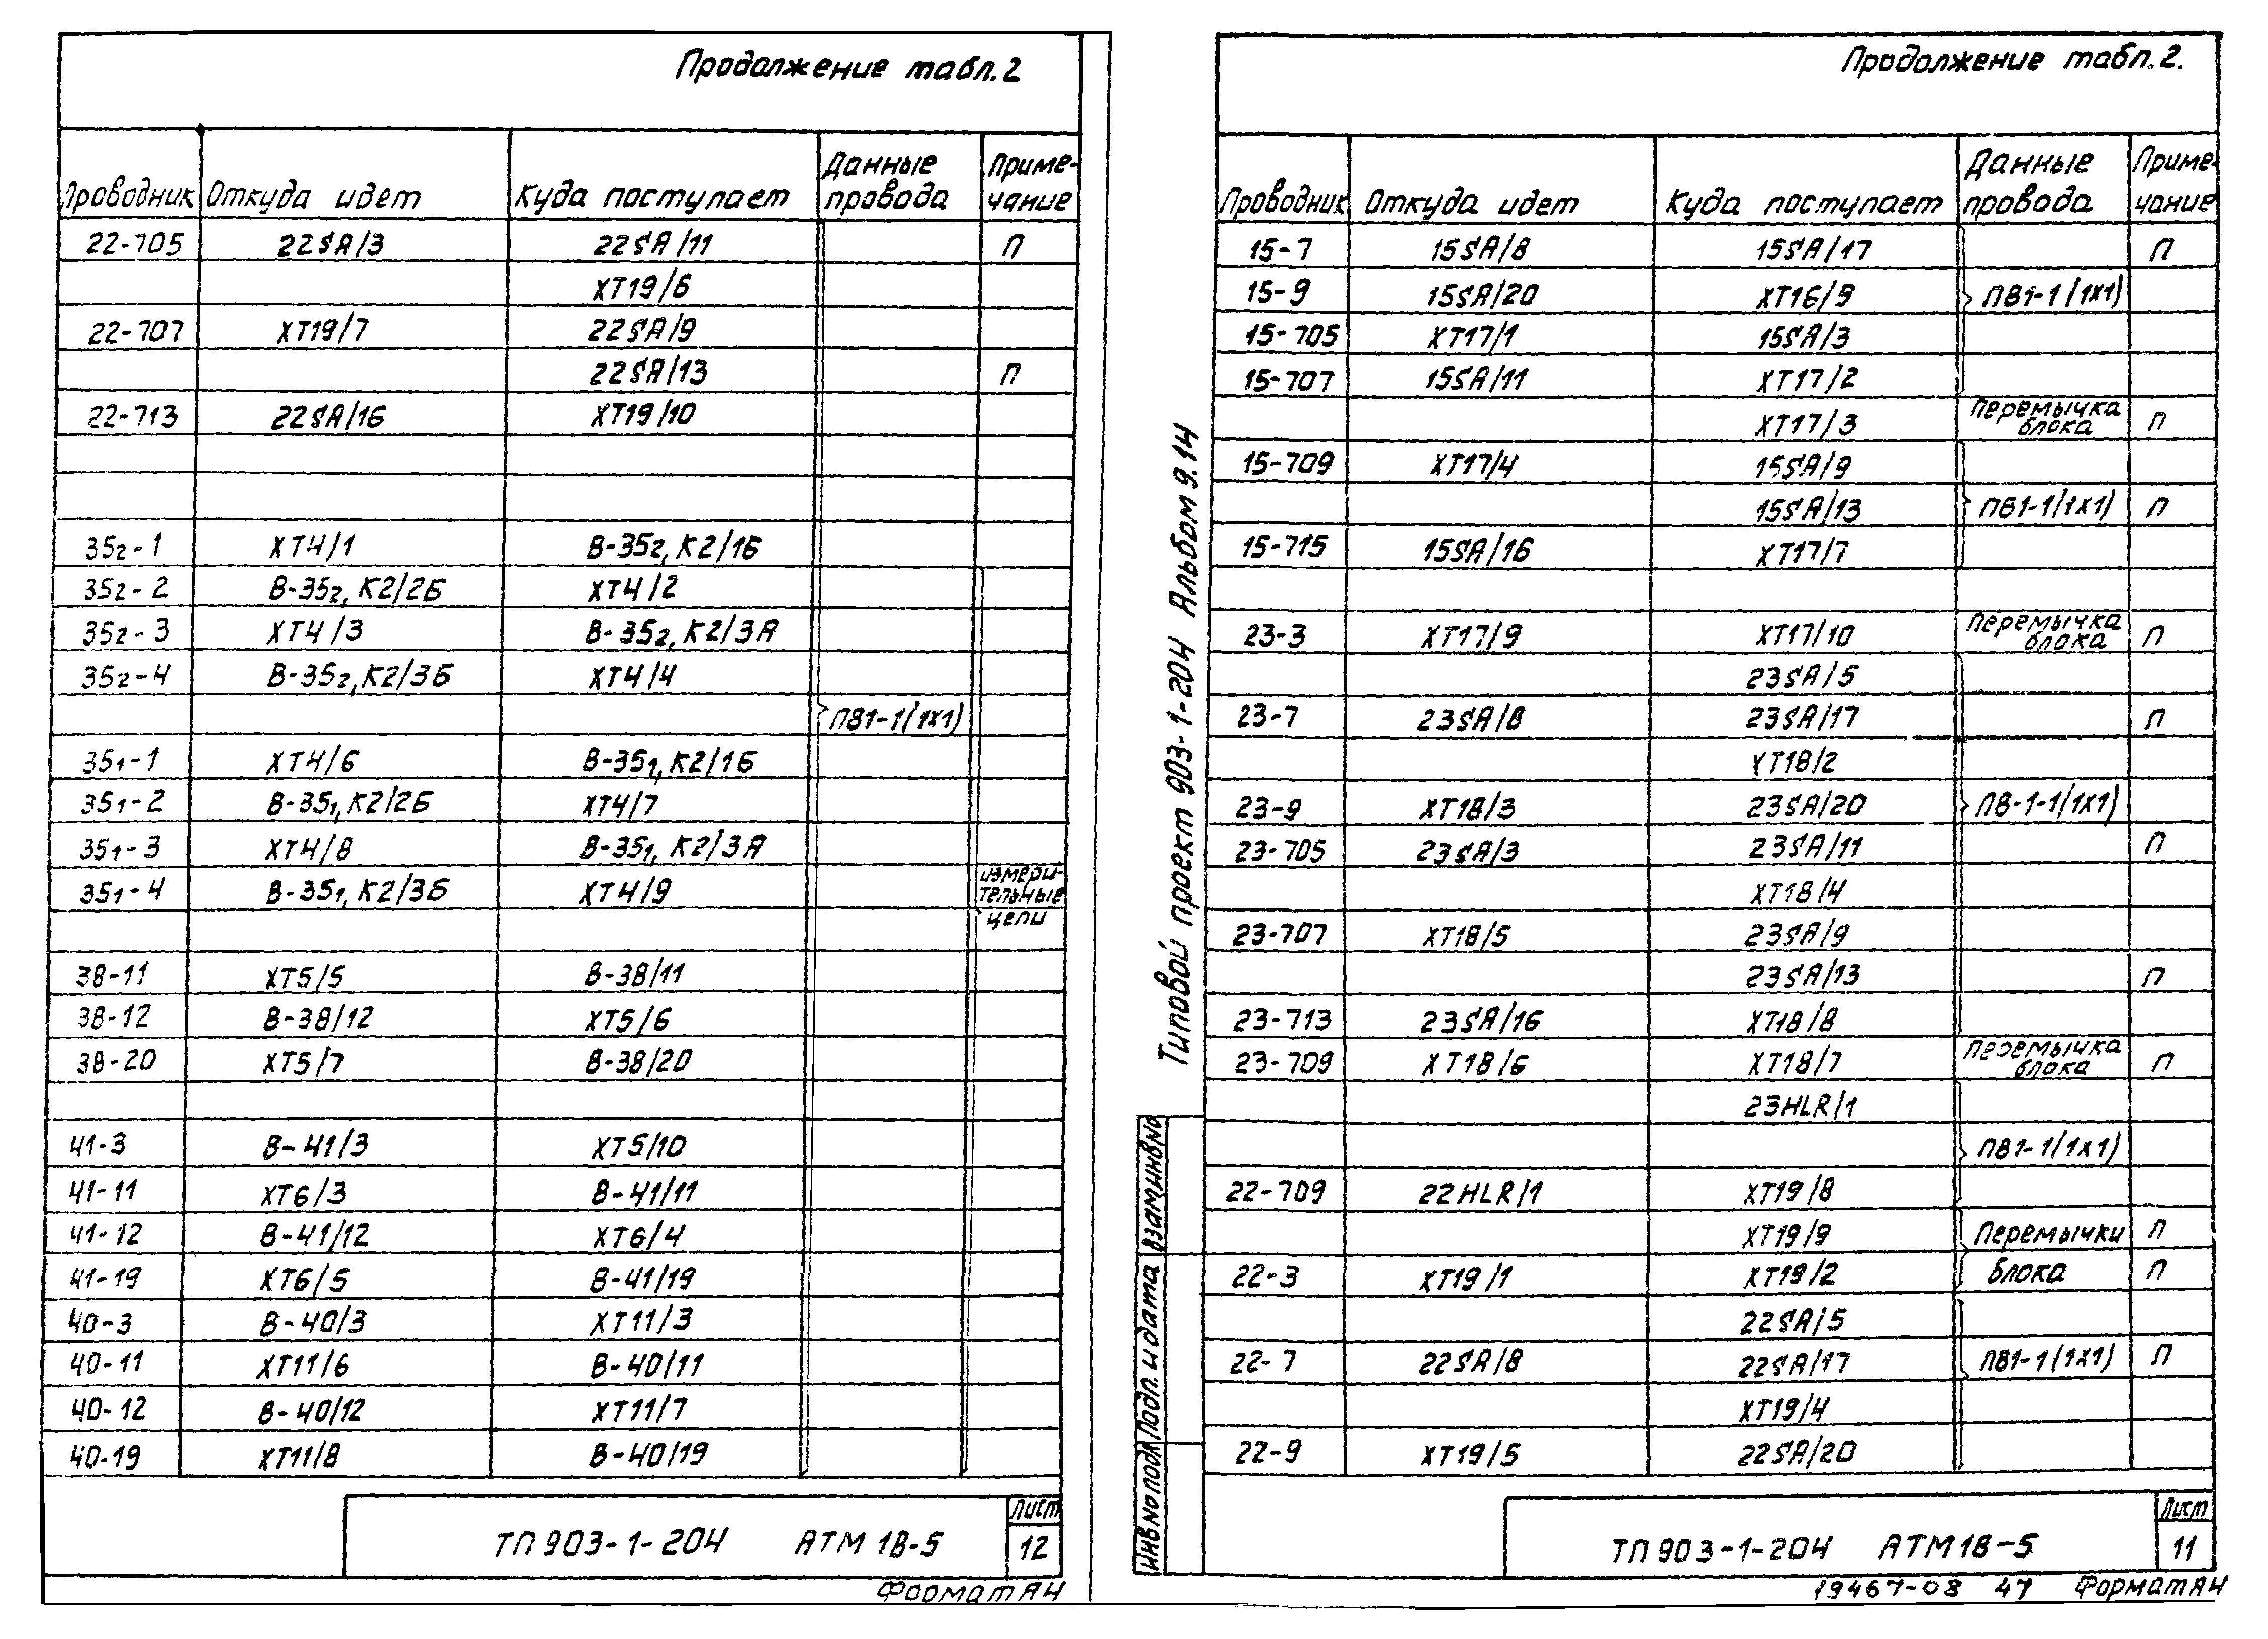 Продолжение табл.2
Проводник Откуда идет Куда поступает Данные провода Приме-чание
22-705 22SA/3 22SA/11 П
XT19/6
22-707 XT19/7 22SA/9
22SA/13 П
22-713 22SA/16 XT19/10
35₂-1 XT4/1 В-35₂, К2/1Б
35₂-2 В-35₂, К2/2Б XT4/2
35₂-3 XT4/3 В-35₂, К2/3А
35₂-4 В-35₂, К2/3Б XT4/4
ПВ1-1(1х1)
35₁-1 XT4/6 В-35₁, К2/1Б
35₁-2 В-35₁, К2/2Б XT4/7
35₁-3 XT4/8 В-35₁, К2/3А
35₁-4 В-35₁, К2/3Б XT4/9 измери-тельные цепи
38-11 XT5/5 В-38/11
38-12 В-38/12 XT5/6
38-20 XT5/7 В-38/20
41-3 В-41/3 XT5/10
41-11 XT6/3 В-41/11
41-12 В-41/12 XT6/4
41-19 XT6/5 В-41/19
40-3 В-40/3 XT11/3
40-11 XT11/6 В-40/11
40-12 В-40/12 XT11/7
40-19 XT11/8 В-40/19
ТП 903-1-204 АТМ 1В-5
Лист
12
Формат А4
Продолжение табл.2.
Проводник Откуда идет Куда поступает Данные провода Приме-чание
15-7 15SA/8 15SA/17 П
15-9 15SA/20 XT16/9 ПВ1-1(1х1)
15-705 XT17/1 15SA/3
15-707 15SA/11 XT17/2
XT17/3 Перемычка блока П
15-709 XT17/4 15SA/9
15SA/13 ПВ1-1(1х1) П
15-715 15SA/16 XT17/7
23-3 XT17/9 XT17/10 Перемычка блока П
23SA/5
23-7 23SA/8 23SA/17 П
XT18/2
23-9 XT18/3 23SA/20 ПВ-1-1(1х1)
23-705 23SA/3 23SA/11 П
XT18/4
23-707 XT18/5 23SA/9
23SA/13 П
23-713 23SA/16 XT18/8
23-709 XT18/6 XT18/7 Перемычка блока П
23HLR/1
ПВ1-1(1х1)
22-709 22HLR/1 XT19/8
XT19/9 Перемычки П
22-3 XT19/1 XT19/2 блока П
22SA/5
22-7 22SA/8 22SA/17 ПВ1-1(1х1) П
XT19/4
22-9 XT19/5 22SA/20
Типовой проект 903-1-204 Альбом 9.14
Инв.№ подл. Подп. и дата Взам.инв.№
ТП 903-1-204 АТМ 1В-5
Лист
11
19467-08 47 Формат А4